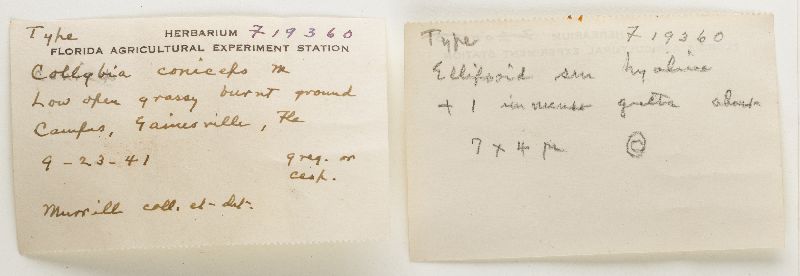 Type HERBARIUM F19360
FLORIDA AGRICULTURAL EXPERIMENT STATION
Collybia coniceps M
Low open grassy burnt ground
Campus, Gainesville, Fla
9-23-41 greg. or
cesp.
Murrill coll. et det.
Type F19360
Ellipsoid sm hyaline
+ 1 immense gutta
7 x 4 µ